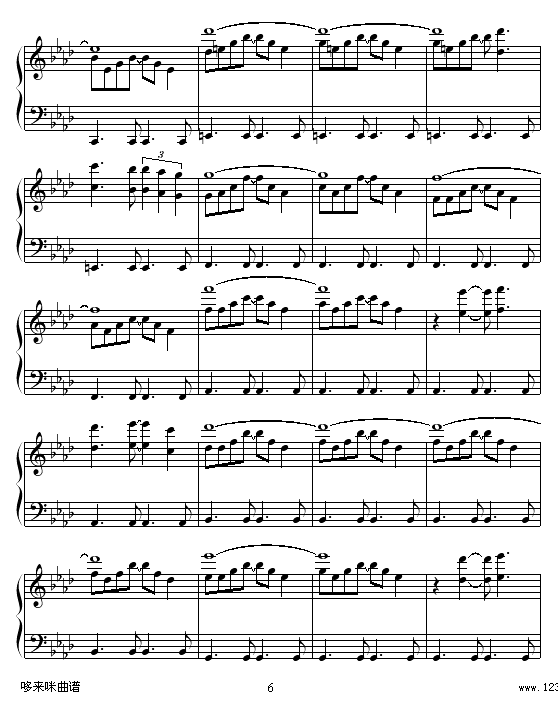 3
哆来咪曲谱
6
www.123